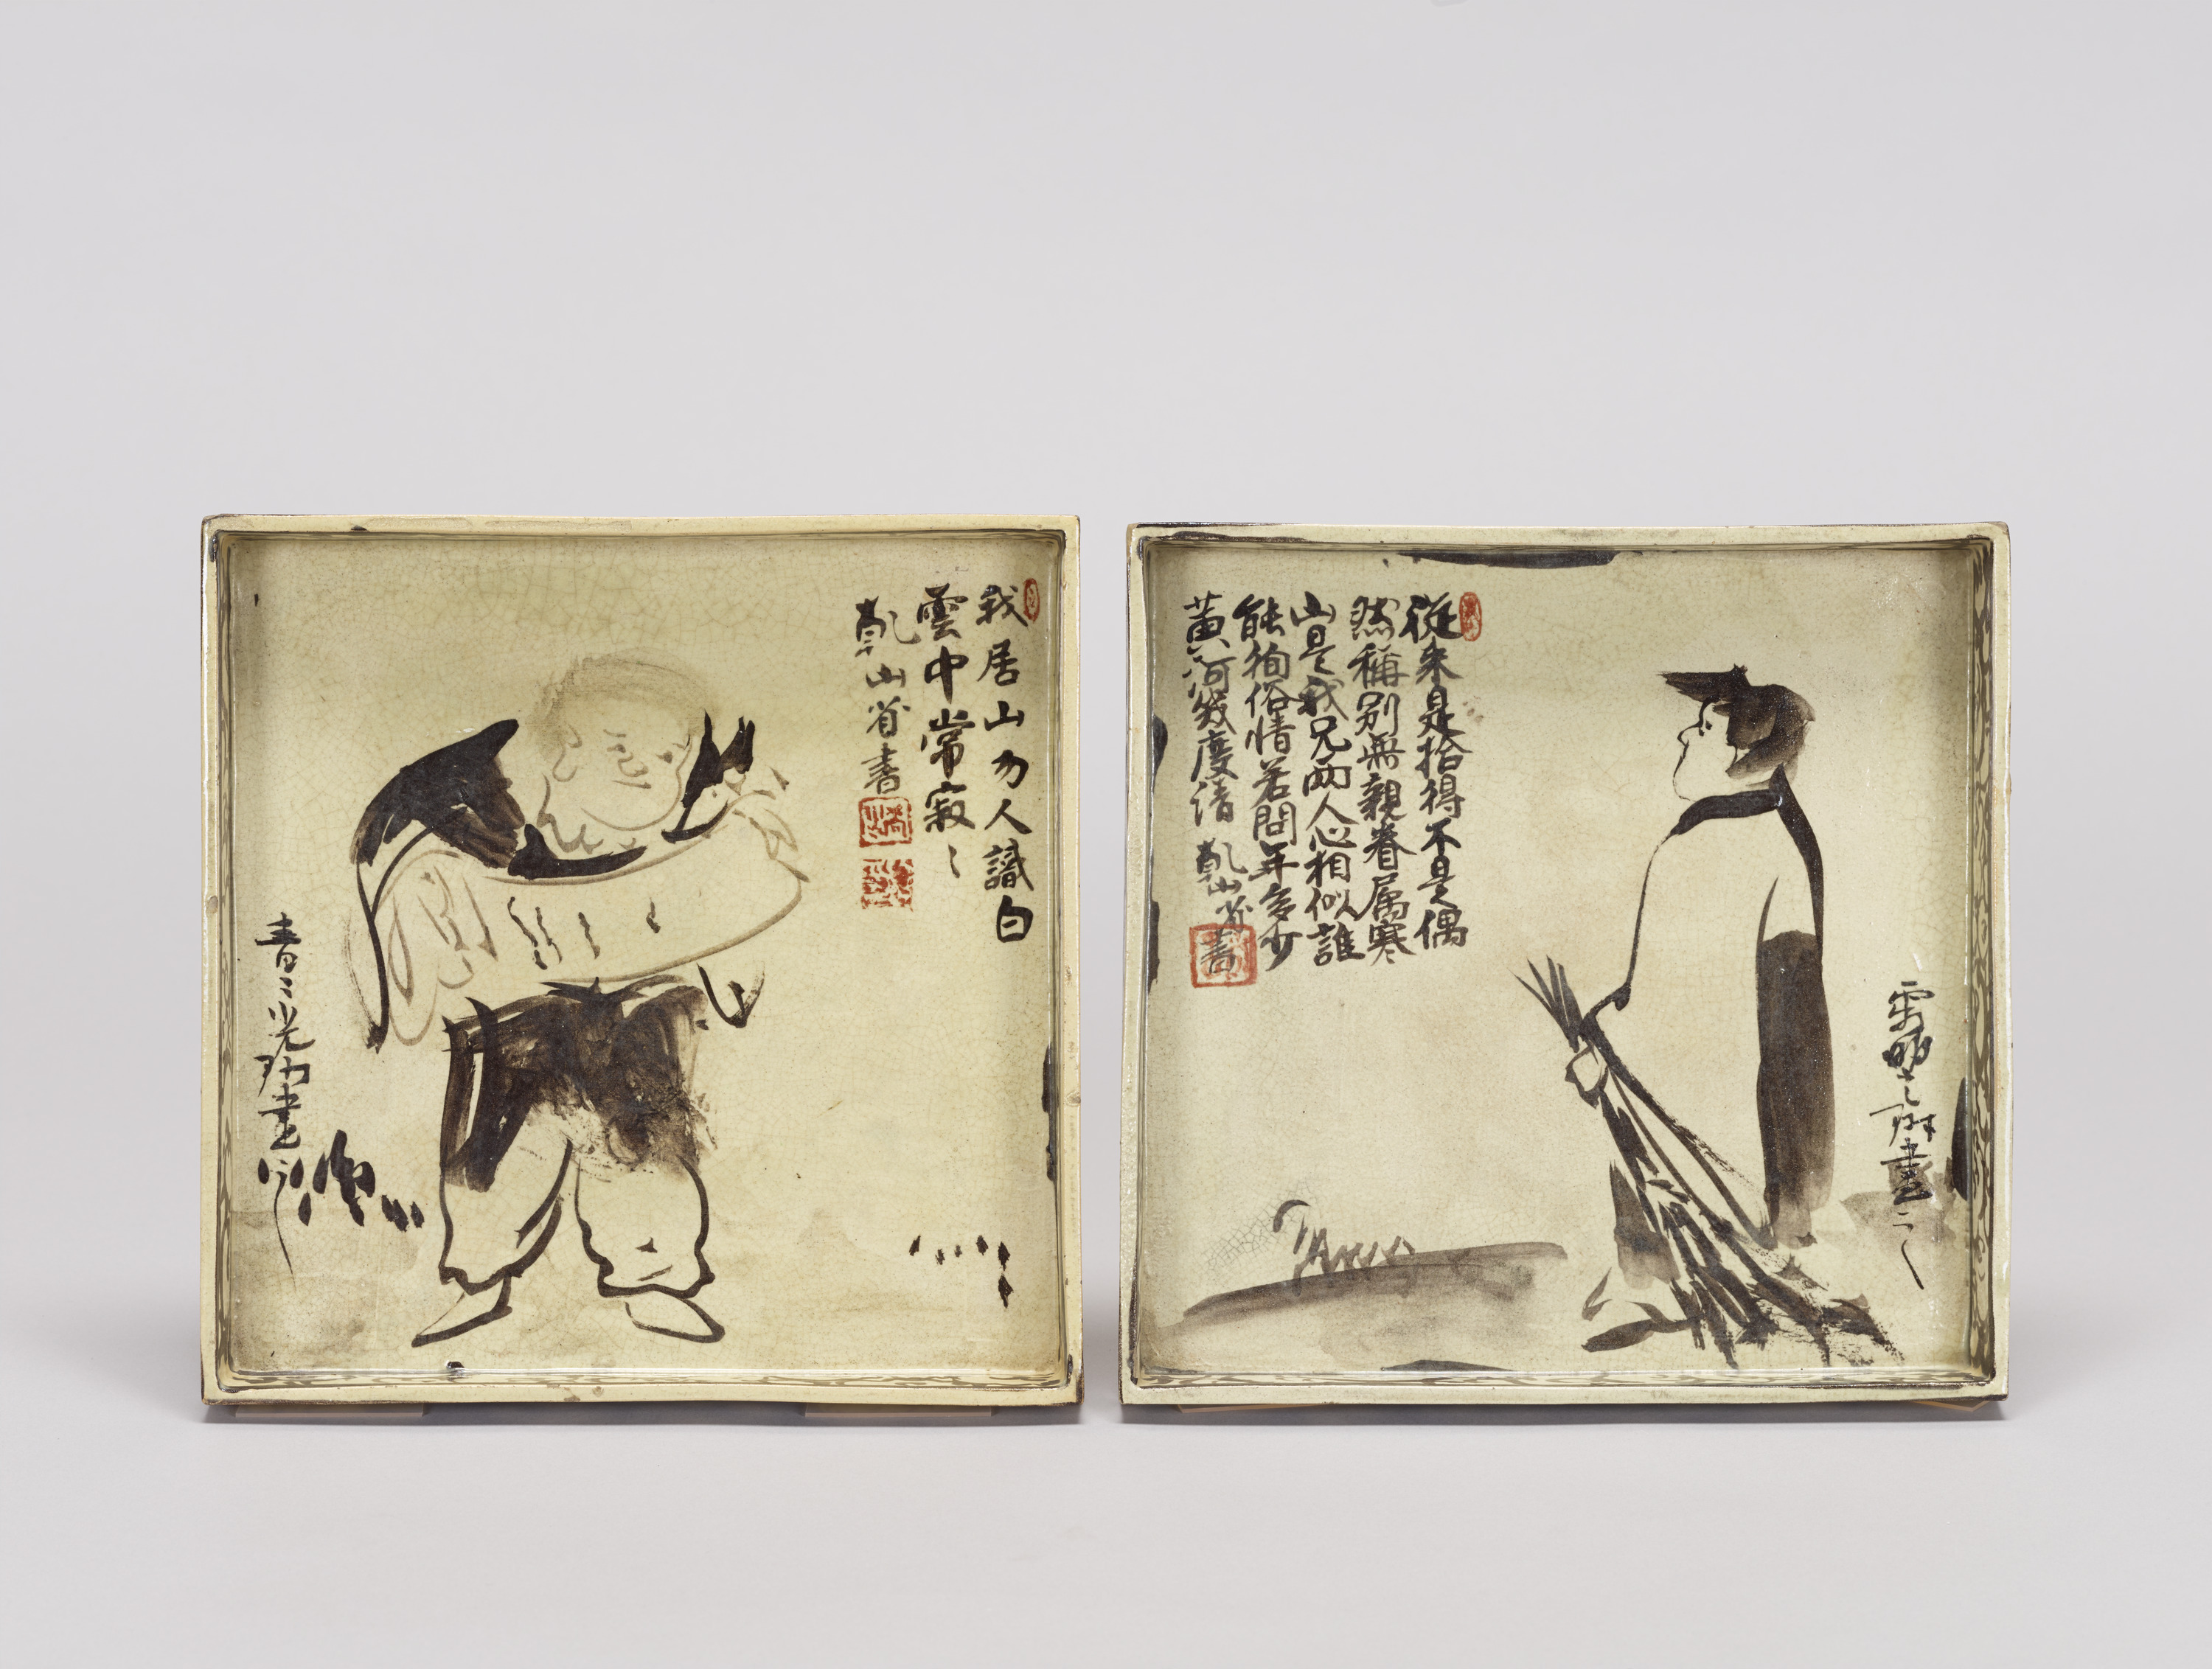 我居山勿人識白
雲中常寂〻
乾山省書
青〻光琳畫
從来是拾得不是偶
然稱別無親眷属寒
山是我兄兩人心相似誰
能徇俗情若問年多少
黄河幾度清
乾山省書